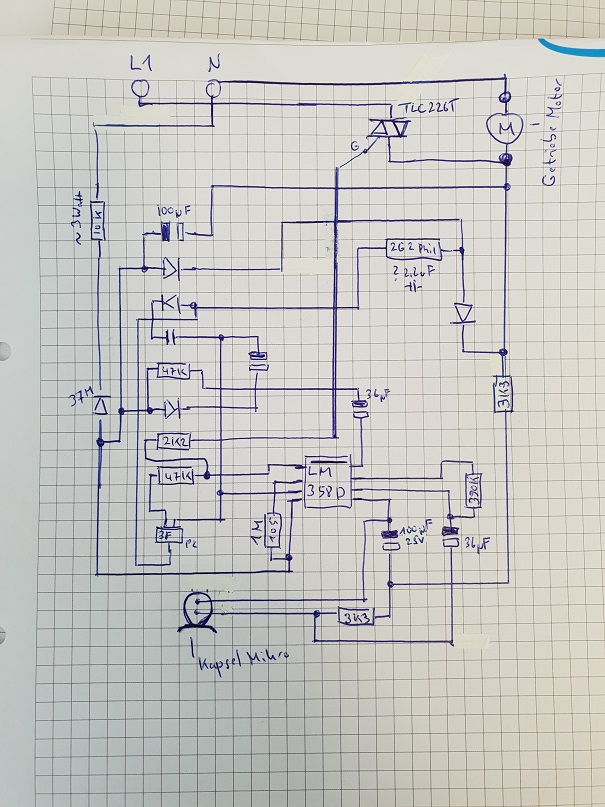 L1
N
TLC226T
G
M
Getriebe Motor
~3Watt
10K
100µF
2G2 Phil
? 2.2µF
37M
47K
36µF
3K3
2K2
47K
LM
358D
390K
1M
105
3F
P2
100µF
25V
36µF
3K3
Kapsel Mikro